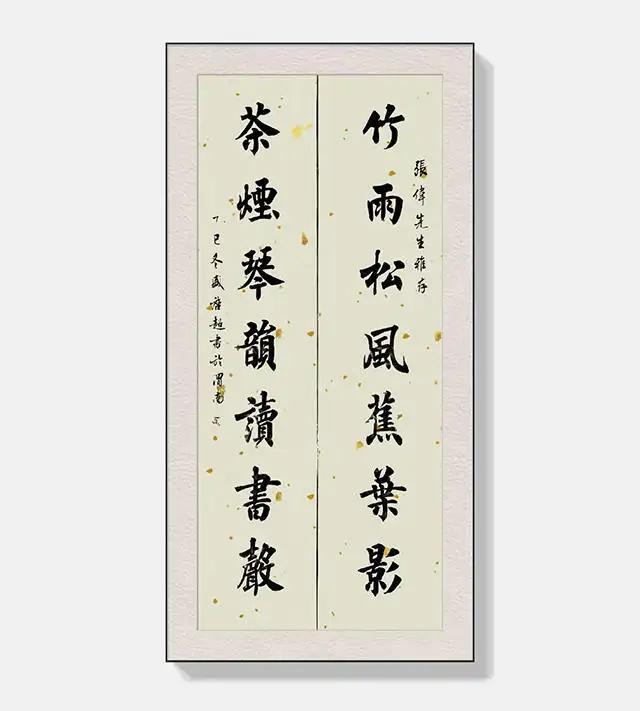 張偉先生雅存
竹雨松風蕉葉影
茶煙琴韻讀書聲
巳冬盛唐超書於渭南